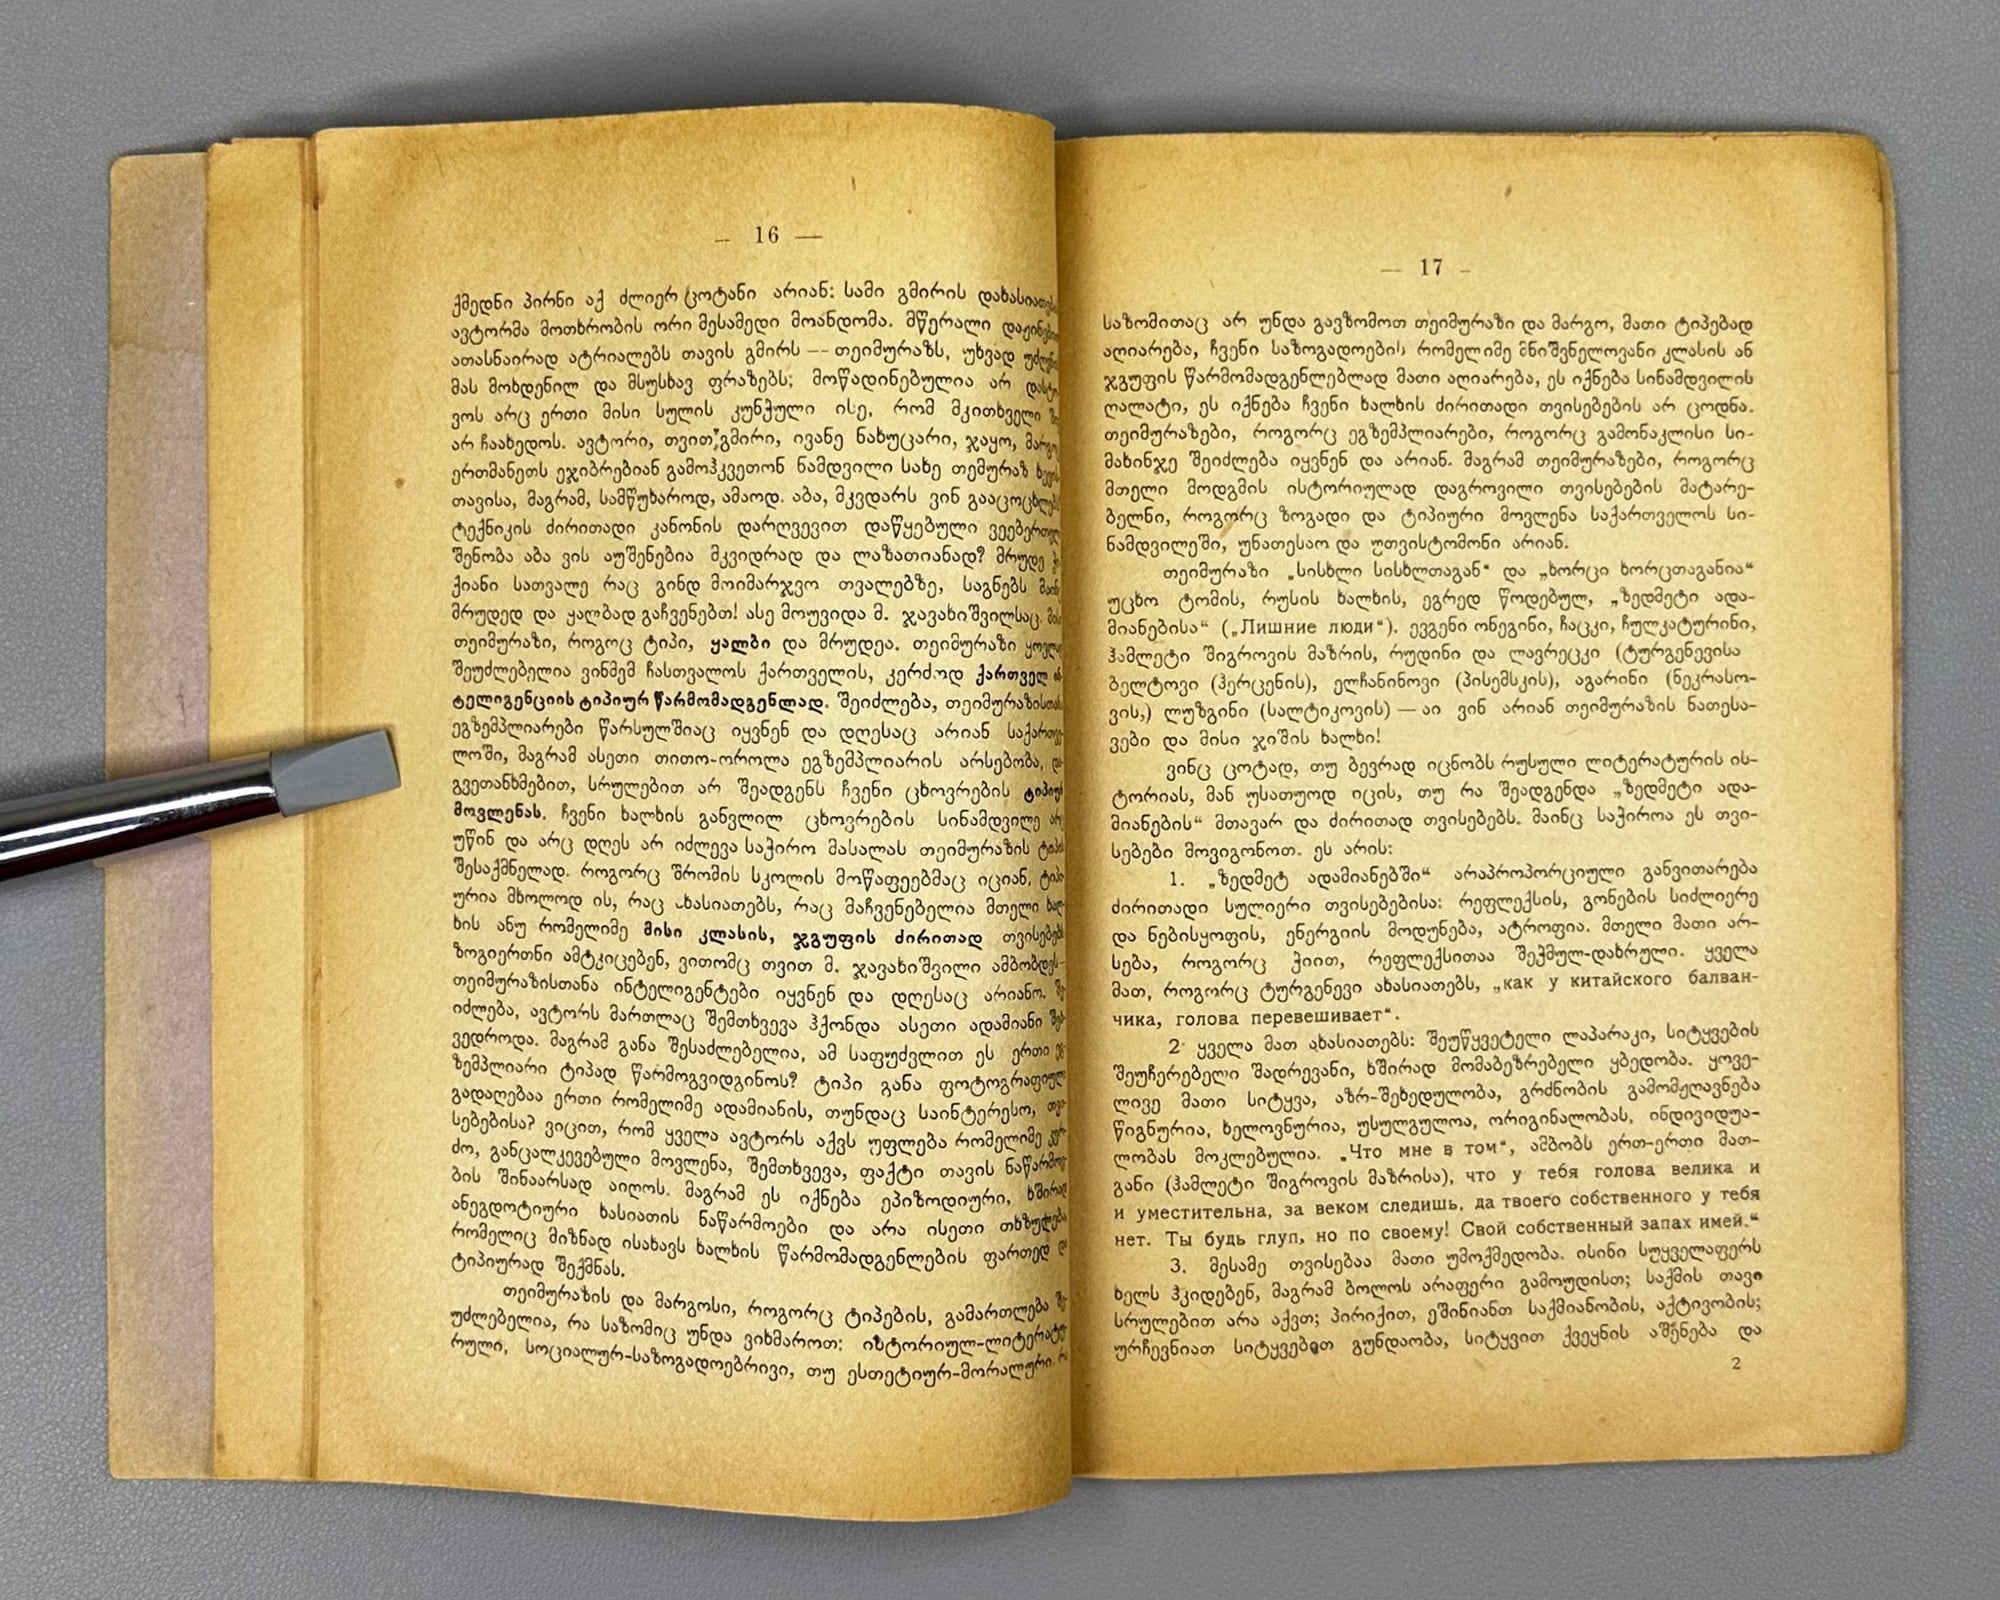 — 16 —
ქმედნი პირნი აქ ძლიერ ცოტანი არიან: სამი გმირის
ავტორმა მოთხრობის ორი მესამედი მოანდომა. მწერალი
ათასნაირად ატრიალებს თავის გმირს — თეიმურაზს, უხვად
მას მოხდენილ და მსუსხავ ფრაზებს; მოწადინებულია არ
ვოს არც ერთი მისი სულის კუნჭული ისე, რომ მკითხველი
არ ჩაახედოს. ავტორი, თვით გმირი, ივანე ნახუცარი, ჯაყო,
ერთმანეთს ეჯიბრებიან გამოჰკვეთონ ნამდვილი სახე თემურაზ
თავისა, მაგრამ, სამწუხაროდ, ამაოდ. აბა, მკვდარს ვინ
ტექნიკის ძირითადი კანონის დარღვევით დაწყებული
შენობა აბა ვის აუშენებია მკვიდრად და ლაზათიანად? მრუდე
ქიანი სათვალე რაც გინდ მოიმარჯვო თვალებზე, საგნებს
მრუდედ და ყალბად გაჩვენებთ! ასე მოუვიდა მ. ჯავახიშვილსაც.
თეიმურაზი, როგოც ტიპი, ყალბი და მრუდეა. თეიმურაზი
შეუძლებელია ვინმემ ჩასთვალოს ქართველის, კერძოდ ქართველ
ტელიგენციის ტიპიურ წარმომადგენლად. შეიძლება,
ეგზემპლიარები წარსულშიაც იყვნენ და დღესაც არიან
ლოში, მაგრამ ასეთი თითო-ოროლა ეგზემპლიარის არსებობა,
გვეთანხმებით, სრულებით არ შეადგენს ჩვენი ცხოვრების
მოვლენას. ჩვენი ხალხის განვლილ ცხოვრების სინამდვილე
უწინ და არც დღეს არ იძლევა საჭირო მასალას თეიმურაზის
შესაქმნელად. როგორც შრომის სკოლის მოწაფეებმაც იციან,
ურია მხოლოდ ის, რაც ახასიათებს, რაც მაჩვენებელია მთელი
ხის ანუ რომელიმე მისი კლასის, ჯგუფის ძირითად
ზოგიერთნი ამტკიცებენ, ვითომც თვით მ. ჯავახიშვილი
თეიმურაზისთანა ინტელიგენტები იყვნენ და დღესაც არიანო.
იძლება, ავტორს მართლაც შემთხვევა ჰქონდა ასეთი ადამიანი
ვედროდა. მაგრამ განა შესაძლებელია, ამ საფუძვლით ეს ერთი
ზემპლიარი ტიპად წარმოგვიდგინოს? ტიპი განა
გადაღებაა ერთი რომელიმე ადამიანის, თუნდაც საინტერესო,
სებებისა? ვიცით, რომ ყველა ავტორს აქვს უფლება რომელიმე
ძო, განცალკევებული მოვლენა, შემთხვევა, ფაქტი თავის
ბის შინაარსად აიღოს. მაგრამ ეს იქნება ეპიზოდიური,
ანეგდოტიური ხასიათის ნაწარმოები და არა ისეთი
რომელიც მიზნად ისახავს ხალხის წარმომადგენლების ფართედ
ტიპიურად შექმნას.
თეიმურაზის და მარგოსი, როგორც ტიპების, გამართლება
უძლებელია, რა საზომიც უნდა ვიხმაროთ: ისტორიულ-
რული, სოციალურ-საზოგადოებრივი, თუ ესთეტიურ-მორალური.
— 17 —
საზომითაც არ უნდა გავზომოთ თეიმურაზი და მარგო, მათი ტიპებად
აღიარება, ჩვენი საზოგადოების რომელიმე მნიშვნელოვანი კლასის ან
ჯგუფის წარმომადგენლებლად მათი აღიარება, ეს იქნება სინამდვილის
ღალატი, ეს იქნება ჩვენი ხალხის ძირითადი თვისებების არ ცოდნა.
თეიმურაზები, როგორც ეგზემპლიარები, როგორც გამონაკლისი სი-
მახინჯე შეიძლება იყვნენ და არიან. მაგრამ თეიმურაზები, როგორც
მთელი მოდგმის ისტორიულად დაგროვილი თვისებების მატარე-
ბელნი, როგორც ზოგადი და ტიპიური მოვლენა საქართველოს სი-
ნამდვილეში, უნათესაო და უთვისტომონი არიან.
თეიმურაზი „სისხლი სისხლთაგან“ და „ხორცი ხორცთაგანია“
უცხო ტომის, რუსის ხალხის, ეგრედ წოდებულ, „ზედმეტი ადა-
მიანებისა“ („Лишние люди“). ევგენი ონეგინი, ჩაცკი, ჩულკატურინი,
ჰამლეტი შიგროვის მაზრის, რუდინი და ლავრეცკი (ტურგენევისა
ბელტოვი (ჰერცენის), ელჩანინოვი (პისემსკის), აგარინი (ნეკრასო-
ვის,) ლუზგინი (სალტიკოვის) — აი ვინ არიან თეიმურაზის ნათესა-
ვები და მისი ჯიშის ხალხი!
ვინც ცოტად, თუ ბევრად იცნობს რუსული ლიტერატურის ის-
ტორიას, მან უსათუოდ იცის, თუ რა შეადგენდა „ზედმეტი ადა-
მიანების“ მთავარ და ძირითად თვისებებს. მაინც საჭიროა ეს თვი-
სებები მოვიგონოთ. ეს არის:
1. „ზედმეტ ადამიანებში“ არაპროპორციული განვითარება
ძირითადი სულიერი თვისებებისა: რეფლექსის, გონების სიძლიერე
და ნებისყოფის, ენერგიის მოდუნება, ატროფია. მთელი მათი არ-
სება, როგორც ჭიით, რეფლექსითაა შეჭმულ-დახრული. ყველა
მათ, როგორც ტურგენევი ახასიათებს, „как у китайского балван-
чика, голова перевешивает“.
2 ყველა მათ ახასიათებს: შეუწყვეტელი ლაპარაკი, სიტყვების
შეუჩერებელი შადრევანი, ხშირად მომაბეზრებელი ყბედობა. ყოვე-
ლივე მათი სიტყვა, აზრ-შეხედულობა, გრძნობის გამომჟღავნება
წიგნურია, ხელოვნურია, უსულგულოა, ორიგინალობას, ინდივიდუა-
ლობას მოკლებულია. „Что мне в том“, ამბობს ერთ-ერთი მათ-
განი (ჰამლეტი შიგროვის მაზრისა), что у тебя голова велика и
и уместительна, за веком следишь, да твоего собственного у тебя
нет. Ты будь глуп, но по своему! Свой собственный запах имей.“
3. მესამე თვისებაა მათი უმოქმედობა. ისინი სუყველაფერს
ხელს ჰკიდებენ, მაგრამ ბოლოს არაფერი გამოუდისთ; საქმის თავი
სრულებით არა აქვთ; პირიქით, ეშინიანთ საქმიანობის, აქტივობის;
ურჩევნიათ სიტყვებით გუნდაობა, სიტყვით ქვეყნის აშენება და
2